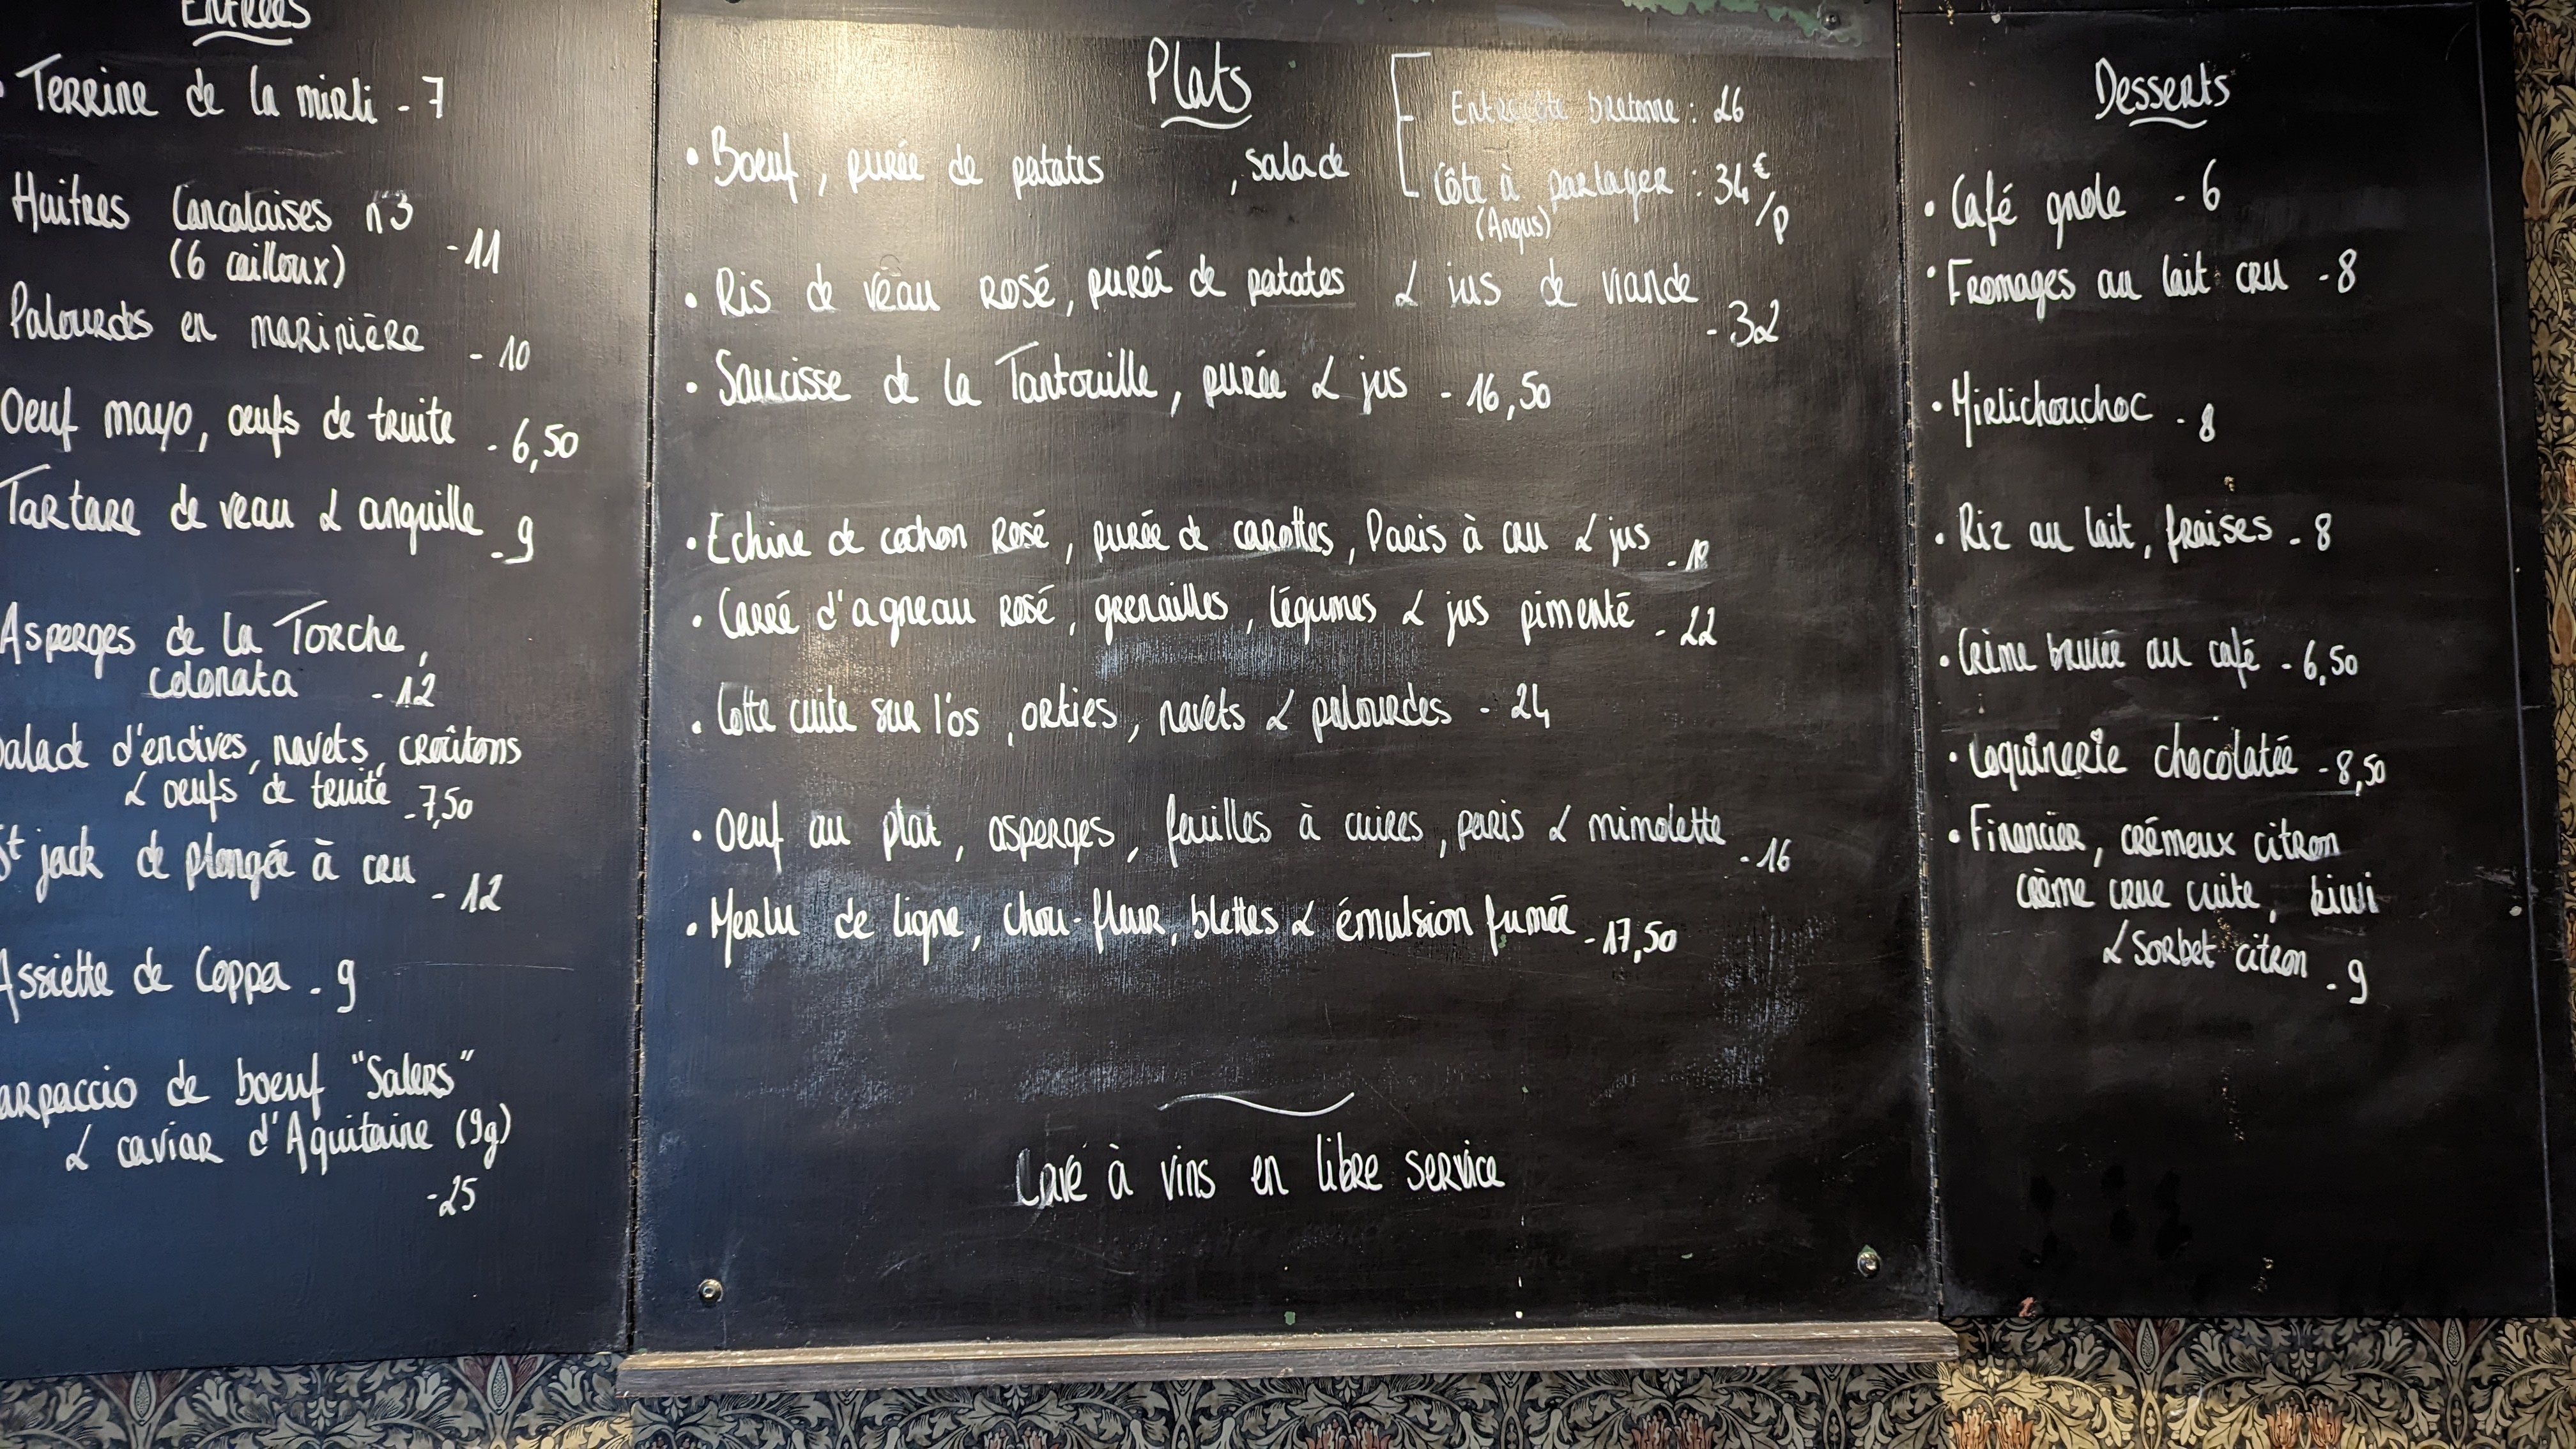 Entrées
• Terrine de la mirli - 7
Huitres Cancalaises n°3
(6 cailloux) - 11
Palourdes en marinière - 10
Oeuf mayo, oeufs de truite - 6,50
Tartare de veau & anguille - 9
Asperges de la Torche,
colonata - 12
Salade d'endives, navets, croûtons
& oeufs de truite - 7,50
St jack de plongée à cru - 12
Assiette de Coppa - 9
arpaccio de boeuf "Salers"
& caviar d'Aquitaine (9g)
- 25
Plats
• Boeuf, purée de patates , salade
Entrecôte bretonne : 26
Côte à partager : 34€/p
(Angus)
• Ris de veau rosé, purée de patates & jus de viande - 32
• Saucisse de la Tantouille, purée & jus - 16,50
• Echine de cochon rosé, purée de carottes, Paris à cru & jus -
• Carré d'agneau rosé, grenailles, légumes & jus pimenté - 22
• Lotte cuite sur l'os, orties, navets & palourdes - 24
• Oeuf au plat, asperges, feuilles à cuires, paris & mimolette - 16
• Merlu de ligne, chou-fleur, blettes & émulsion fumée - 17,50
Cave à vins en libre service
Desserts
• Café gnole - 6
• Fromages au lait cru - 8
• Mirlichouchoc - 8
• Riz au lait, fraises - 8
• Crème brulée au café - 6,50
• Coquinerie chocolatée - 8,50
• Financier, crémeux citron
crème crue cuite, kiwi
& sorbet citron - 9